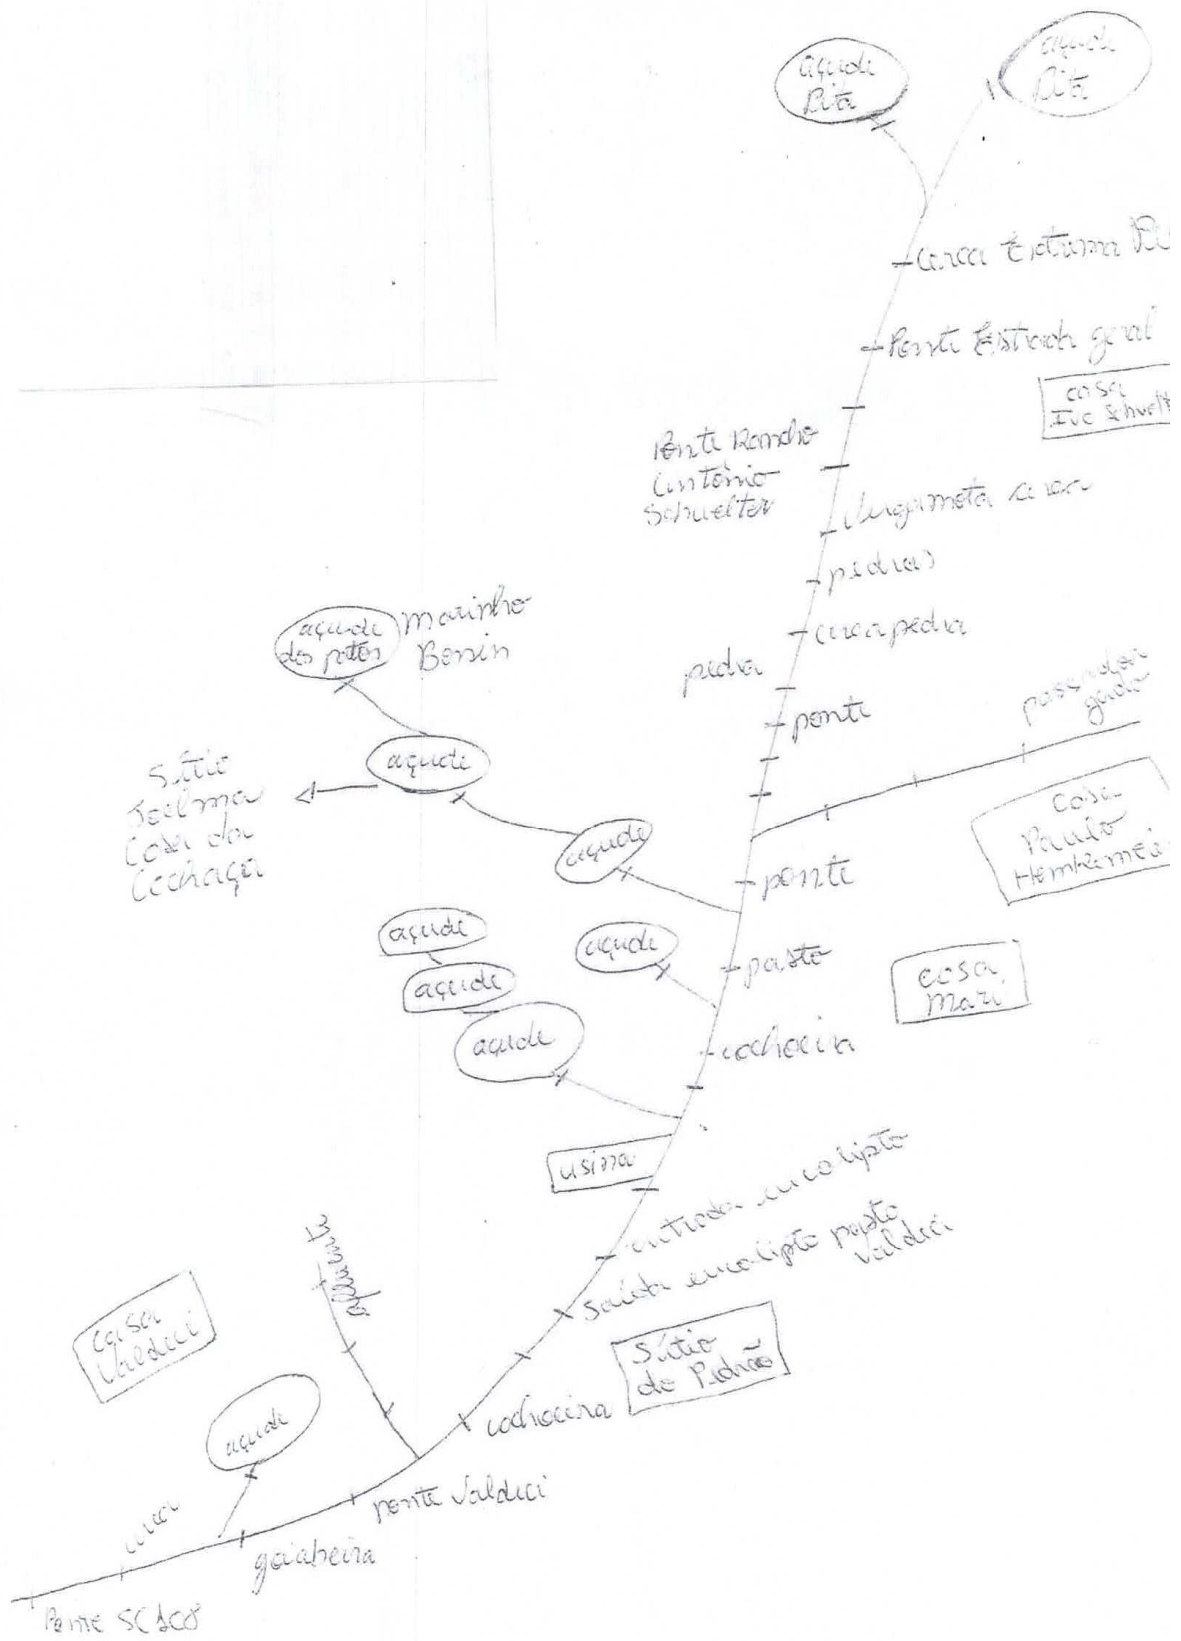 açude
Bita
açude
Bita
cerca Extrema
Ponte Estrada geral
casa
Ivo Schuelt
Ponte Rancho
Antônio
Schuelter
cerca
pedras
cerca pedra
pedra
ponte
passador
gado
açude
dos patos
Marinho
Bonin
açude
Sítio
Joelma
Casa da
Cachaça
açude
casa
Paulo
Hemkemei
ponte
açude
açude
pasto
casa
Mari
açude
açude
cachoeira
usina
entrada eucalipto
saída eucalipto pasto
Valdeci
Sítio
do Pedrão
casa
Valdeci
cachoeira
açude
ponte Valdeci
cerca
goiabeira
Ponte SC108